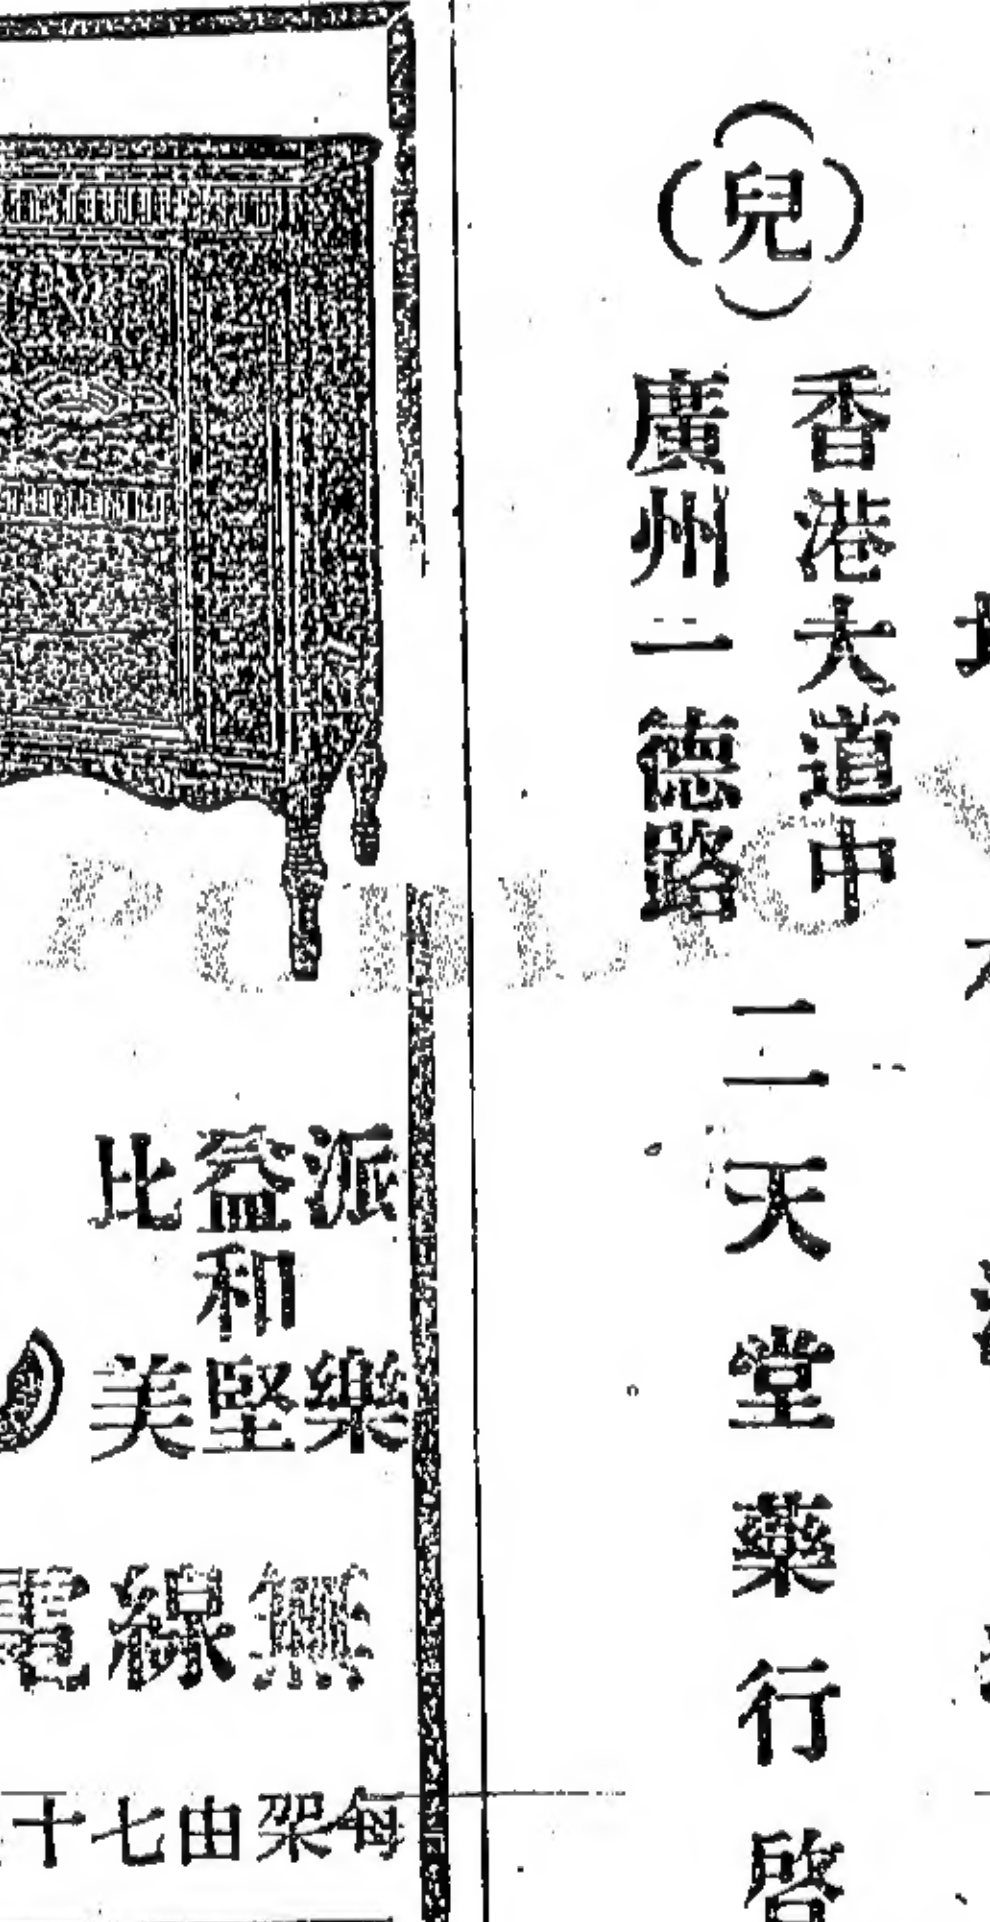 (兒)
香港大道中
廣州一德路
二天堂藥行啓
派益比
和
樂堅美
無線電
每架由七十